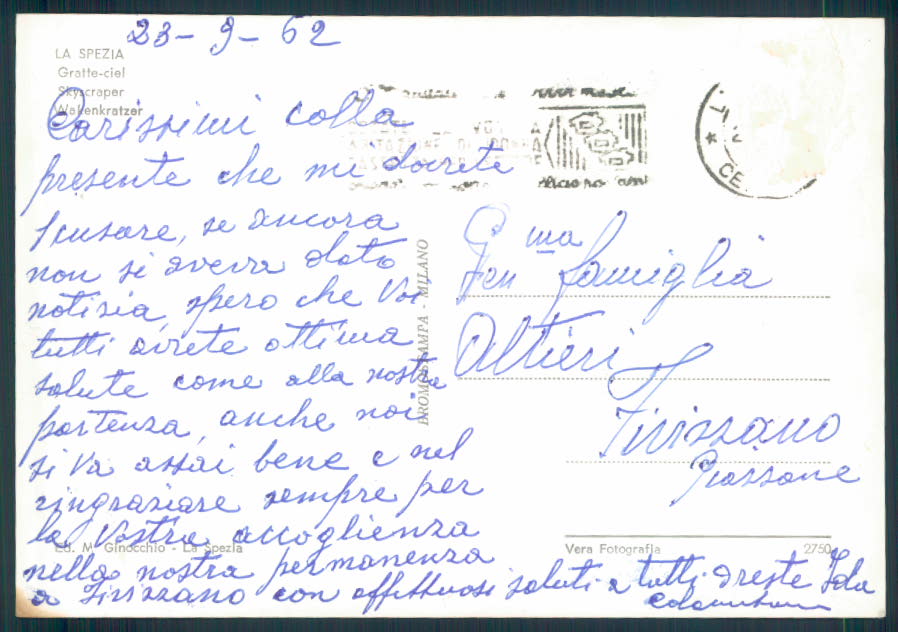 23-9-62
LA SPEZIA
Gratte-ciel
Skyscraper
Wolkenkratzer
Carissimi colla
presente che mi dovrete
scusare, se ancora
non si aveva dato
notizia, spero che Voi
tutti avrete ottima
salute come alla nostra
partenza, anche noi
si va assai bene e nel
ringraziare sempre per
la Vostra accoglienza
nella nostra permanenza
a Fivizzano con affettuosi saluti a tutti Oreste Ida
Ed. M. Ginocchio - La Spezia
BROMOSTAMPA - MILANO
CE
G.ma
famiglia
Altieri
Fivizzano
Vera Fotografia
2750